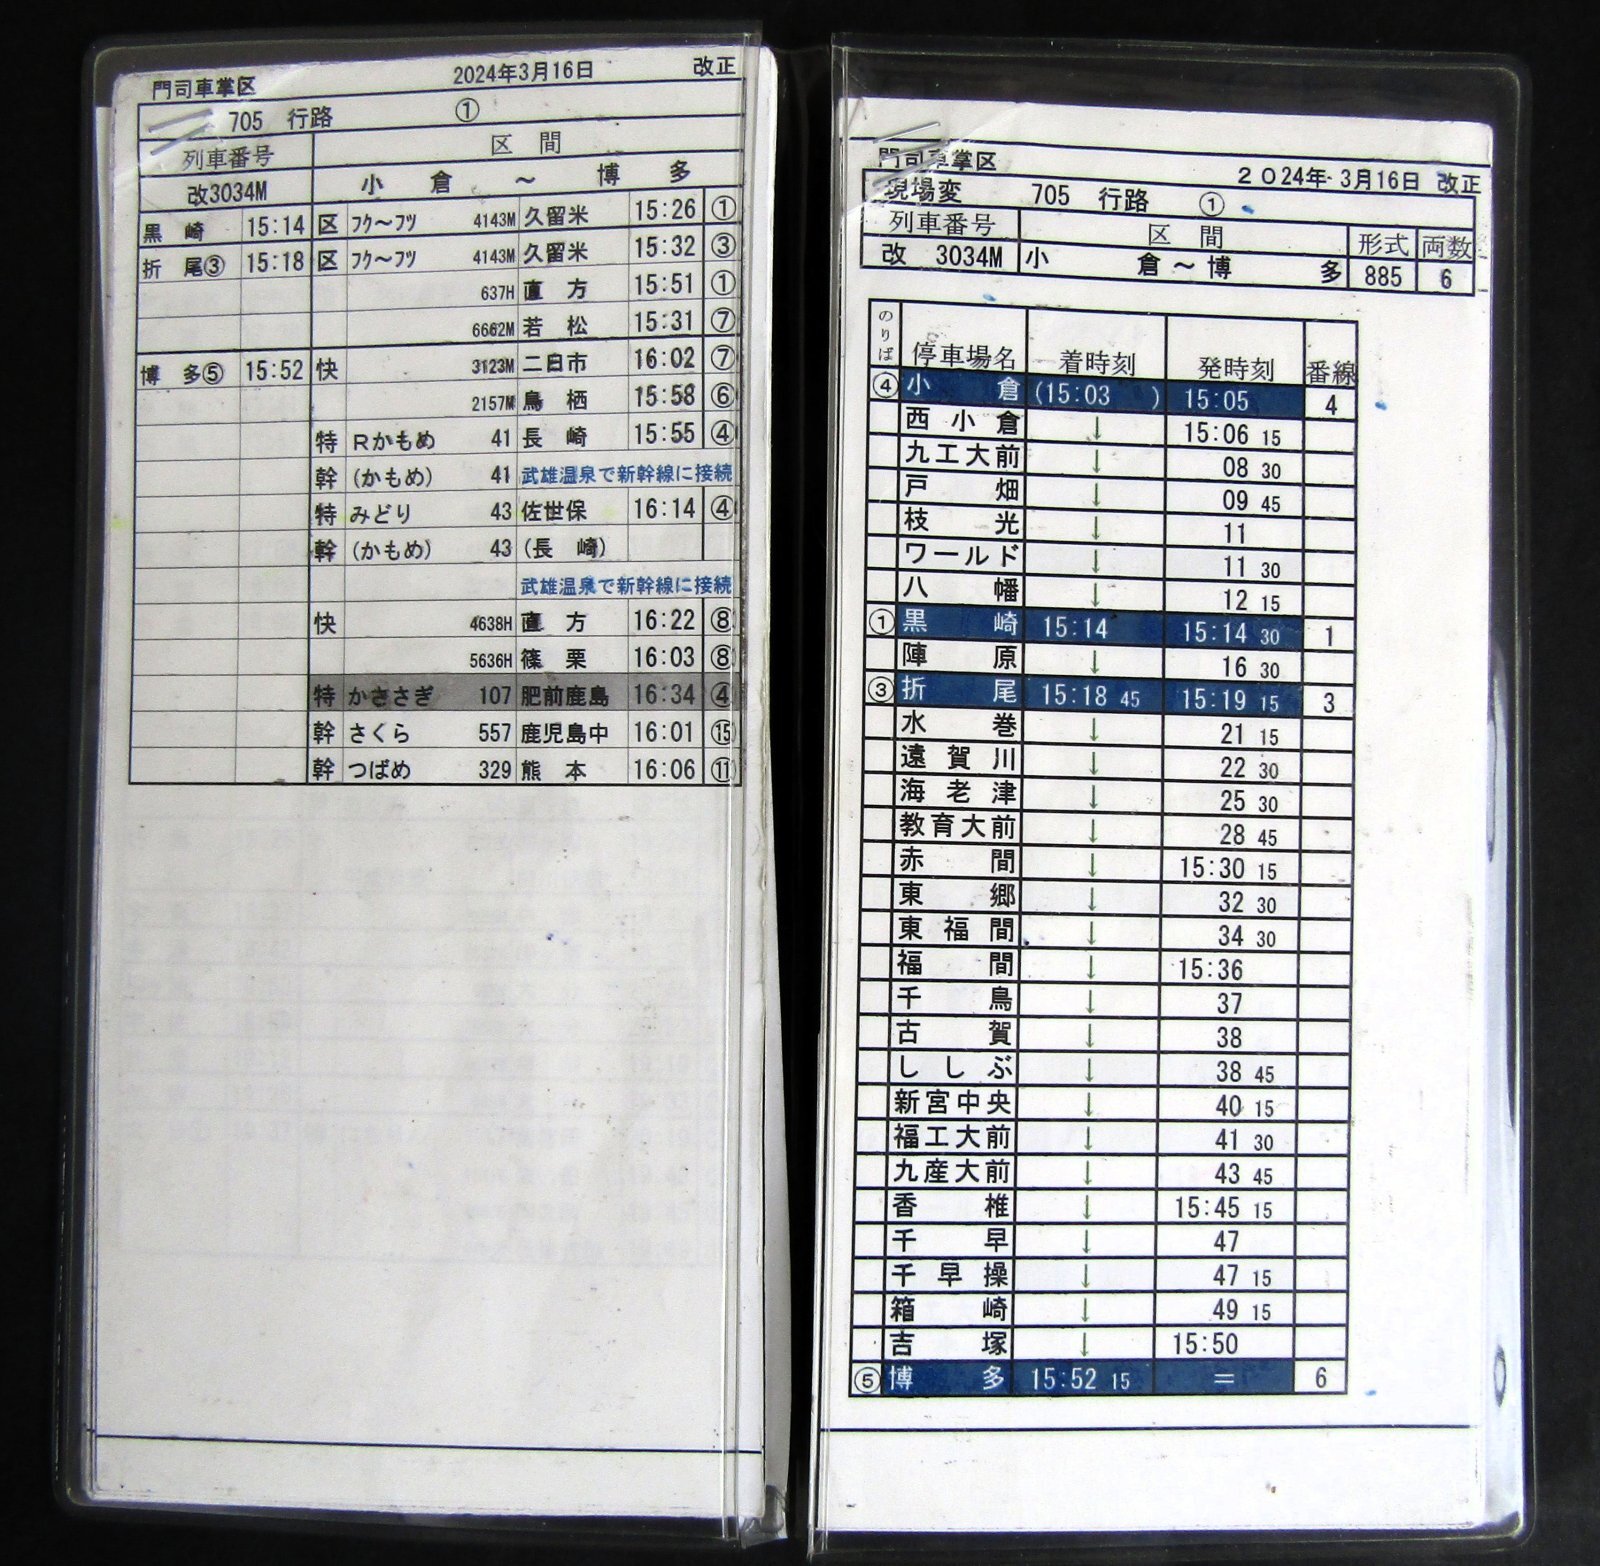 門司車掌区 2024年3月16日 改正
705 行路 ①
列車番号 区 間
改3034M 小 倉 ～ 博 多
黒 崎 15:14 区 フク～フツ 4143M 久留米 15:26 ①
折 尾③ 15:18 区 フク～フツ 4143M 久留米 15:32 ③
637H 直 方 15:51 ①
6662M 若 松 15:31 ⑦
博 多⑤ 15:52 快 3123M 二日市 16:02 ⑦
2157M 鳥 栖 15:58 ⑥
特 Rかもめ 41 長 崎 15:55 ④
幹 (かもめ) 41 武雄温泉で新幹線に接続
特 みどり 43 佐世保 16:14 ④
幹 (かもめ) 43 (長 崎)
武雄温泉で新幹線に接続
快 4638H 直 方 16:22 ⑧
5636H 篠 栗 16:03 ⑧
特 かささぎ 107 肥前鹿島 16:34 ④
幹 さくら 557 鹿児島中 16:01 ⑮
幹 つばめ 329 熊 本 16:06 ⑪
門司車掌区 2024年3月16日 改正
現場変 705 行路 ①
列車番号 区 間 形式 両数
改 3034M 小 倉～博 多 885 6
のりば 停車場名 着時刻 発時刻 番線
④ 小 倉 (15:03 ) 15:05 4
西小倉 ↓ 15:06 15
九工大前 ↓ 08 30
戸 畑 ↓ 09 45
枝 光 ↓ 11
ワールド ↓ 11 30
八 幡 ↓ 12 15
① 黒 崎 15:14 15:14 30 1
陣 原 ↓ 16 30
③ 折 尾 15:18 45 15:19 15 3
水 巻 ↓ 21 15
遠賀川 ↓ 22 30
海老津 ↓ 25 30
教育大前 ↓ 28 45
赤 間 ↓ 15:30 15
東 郷 ↓ 32 30
東福間 ↓ 34 30
福 間 ↓ 15:36
千 鳥 ↓ 37
古 賀 ↓ 38
ししぶ ↓ 38 45
新宮中央 ↓ 40 15
福工大前 ↓ 41 30
九産大前 ↓ 43 45
香 椎 ↓ 15:45 15
千 早 ↓ 47
千早操 ↓ 47 15
箱 崎 ↓ 49 15
吉 塚 ↓ 15:50
⑤ 博 多 15:52 15 ＝ 6